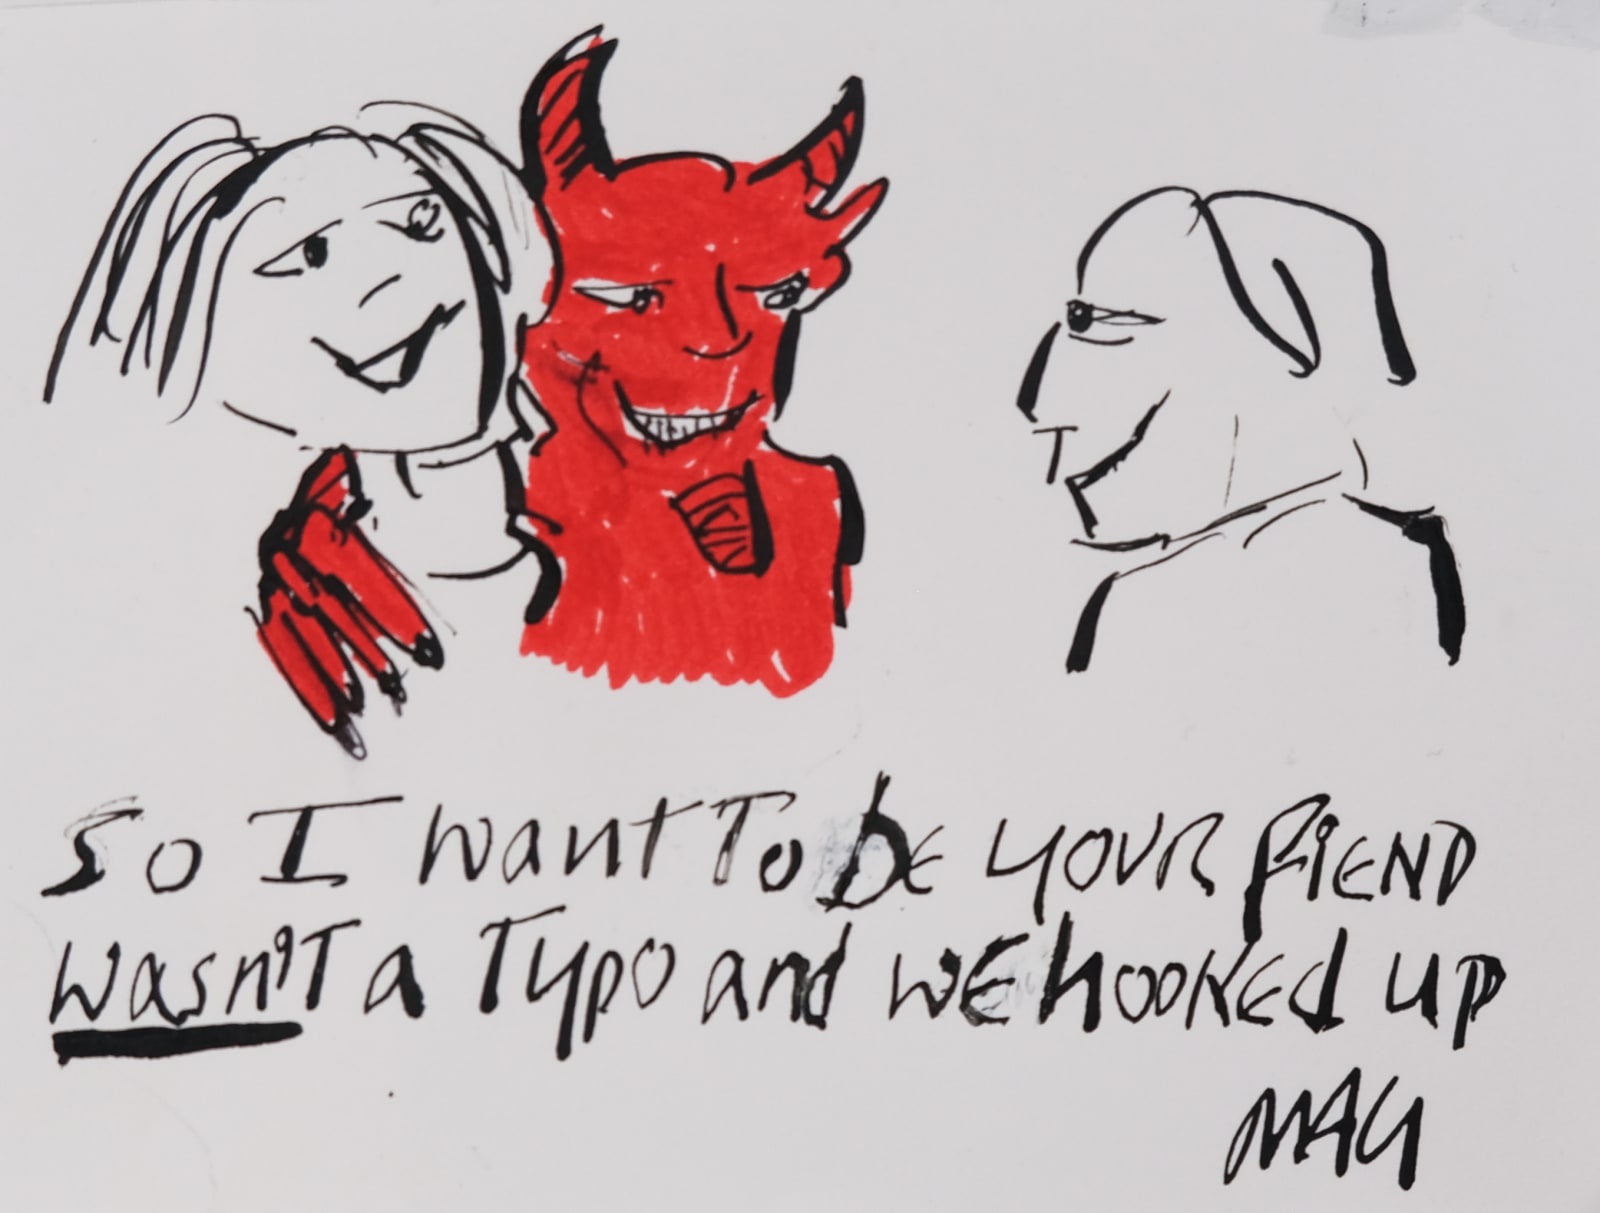 So I want To be YOUR FiEND
wasn'T a Typo and wE hooKEd up
MAG